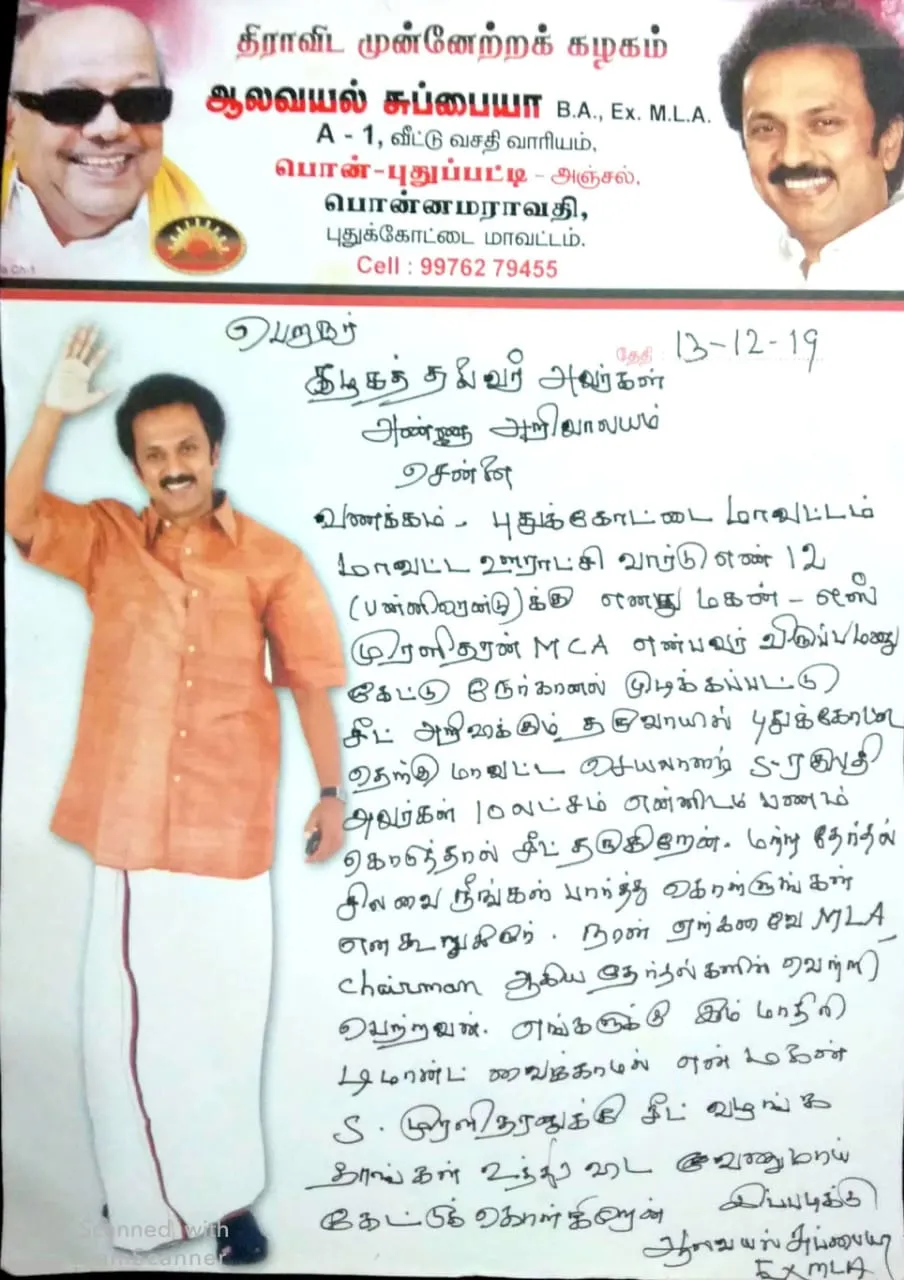 திராவிட முன்னேற்றக் கழகம்
ஆலவயல் சுப்பையா B.A., Ex. M.L.A.
A - 1, வீட்டு வசதி வாரியம்,
பொன்-புதுப்பட்டி - அஞ்சல்,
பொன்னமராவதி,
புதுக்கோட்டை மாவட்டம்.
Cell : 99762 79455
பெறுநர்
தேதி : 13-12-19
கழகத் தலைவர் அவர்கள்
அண்ணா அறிவாலயம்
சென்னை
வணக்கம். புதுக்கோட்டை மாவட்டம்
மாவட்ட ஊராட்சி வார்டு எண் 12
(பன்னிரெண்டு)க்கு எனது மகன் - எஸ்
முரளிதரன் MCA என்பவர் விருப்பமனு
கேட்டு நேர்காணல் முடிக்கப்பட்டு
சீட் அறிவிக்கும் தருவாயில் புதுக்கோட்டை
தெற்கு மாவட்ட செயலாளர் S-ரகுபதி
அவர்கள் 10 லட்சம் என்னிடம் பணம்
கொடுத்தால் சீட் தருகிறேன். மற்ற தேர்தல்
சிலவை நீங்கள் பார்த்து கொள்ளுங்கள்
என கூறுகிறார். நான் ஏற்கனவே MLA,
Chairman ஆகிய தேர்தல்களில் வெற்றி
பெற்றவன். எங்களுக்கு இம் மாதிரி
டிமாண்ட் வைக்காமல் என் மகன்
S. முரளிதரனுக்கு சீட் வழங்க
தாங்கள் உத்தர விட வேணுமாய்
கேட்டுக் கொள்கிறேன் இப்படிக்கு
ஆலவயல் சுப்பையா
Ex MLA
Scanned with
CamScanner